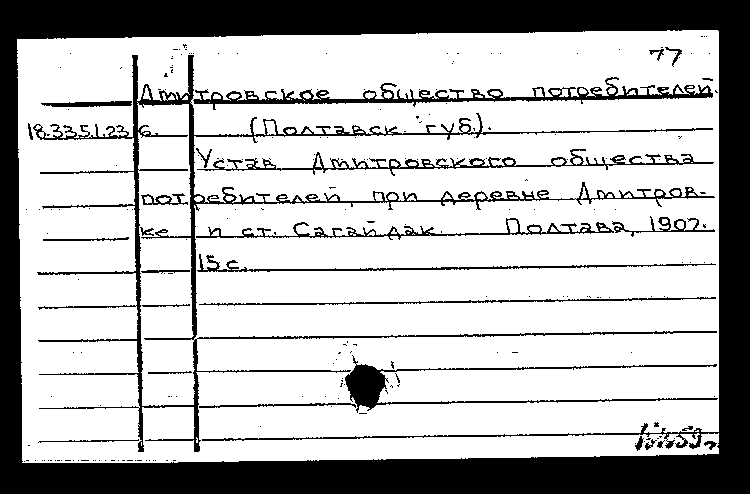 77
Дмитровское общество потребителей.
18.33.5.1.236. (Полтавск. губ.).
Устав Дмитровского общества
потребителей, при деревне Дмитров-
ке и ст. Сагайдак. Полтава, 1907.
15 с.